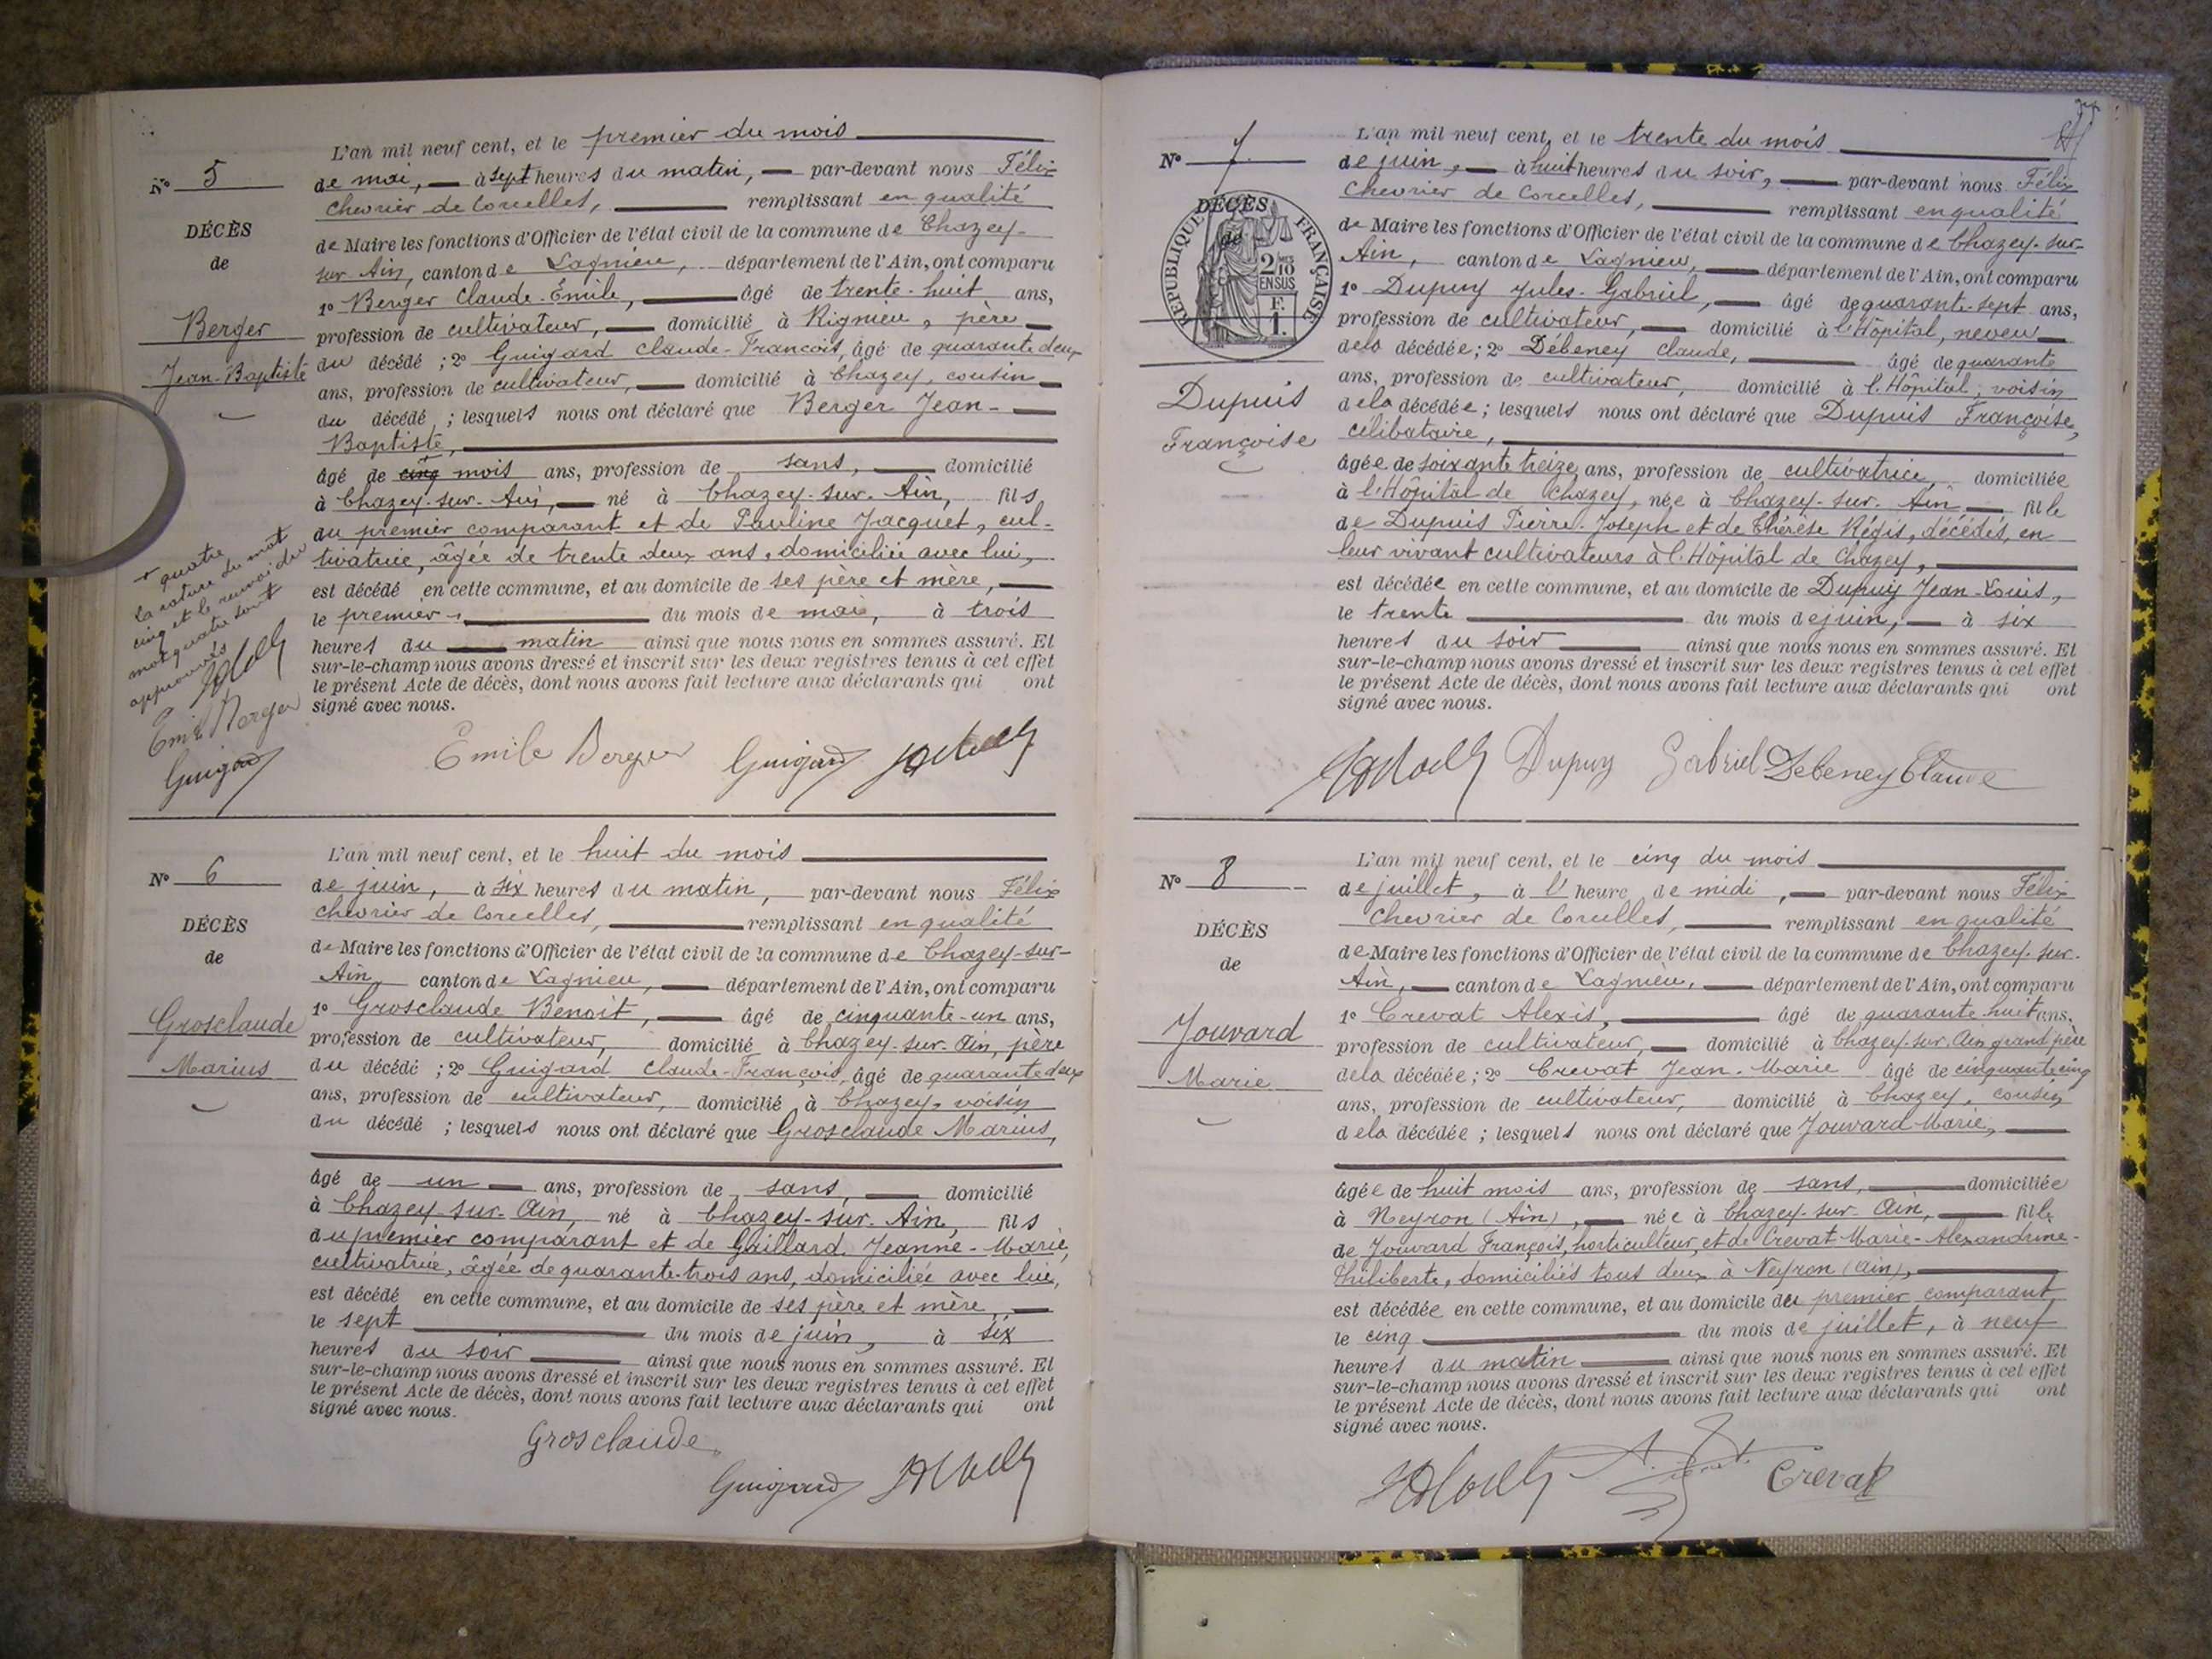 N° 5
DÉCÈS
de
Berger
Jean-Baptiste
L'an mil neuf cent, et le premier du mois
de mai, à sept heures du matin, par-devant nous Félix
Chevrier de Corcelles, remplissant en qualité
de Maire les fonctions d'Officier de l'état civil de la commune de Chazey-
sur Ain, canton de Lagnieu, département de l'Ain, ont comparu
1° Berger Claude-Émile, âgé de trente-huit ans,
profession de cultivateur, domicilié à Rignieu, père
du décédé ; 2° Guigard Claude-François, âgé de quarante deux
ans, profession de cultivateur, domicilié à Chazey, cousin
du décédé ; lesquels nous ont déclaré que Berger Jean-
Baptiste,
âgé de cinq mois ans, profession de sans, domicilié
à Chazey-sur-Ain, né à Chazey-sur-Ain, fils
du premier comparant et de Pauline Jacquet, cul-
tivatrice, âgée de trente deux ans, domiciliée avec lui,
est décédé en cette commune, et au domicile de ses père et mère,
le premier du mois de mai, à trois
heures du matin ainsi que nous nous en sommes assuré. Et
sur-le-champ nous avons dressé et inscrit sur les deux registres tenus à cet effet
le présent Acte de décès, dont nous avons fait lecture aux déclarants qui ont
signé avec nous.
+ quatre
la rature du mot
cinq et le renvoi du
mot quatre sont
approuvés
Emile Berger
Guigard
Emile Berger Guigard
N° 6
DÉCÈS
de
Grosclaude
Marius
L'an mil neuf cent, et le huit du mois
de juin, à six heures du matin, par-devant nous Félix
Chevrier de Corcelles, remplissant en qualité
de Maire les fonctions d'Officier de l'état civil de la commune de Chazey-sur-
Ain, canton de Lagnieu, département de l'Ain, ont comparu
1° Grosclaude Benoit, âgé de cinquante-un ans,
profession de cultivateur, domicilié à Chazey-sur-Ain, père
du décédé ; 2° Guigard Claude-François, âgé de quarante deux
ans, profession de cultivateur, domicilié à Chazey, voisin
du décédé ; lesquels nous ont déclaré que Grosclaude Marius,
âgé de un ans, profession de sans, domicilié
à Chazey-sur-Ain, né à Chazey-sur-Ain, fils
du premier comparant et de Gaillard Jeanne-Marie,
cultivatrice, âgée de quarante-trois ans, domiciliée avec lui,
est décédé en cette commune, et au domicile de ses père et mère,
le sept du mois de juin, à six
heures du soir ainsi que nous nous en sommes assuré. Et
sur-le-champ nous avons dressé et inscrit sur les deux registres tenus à cet effet
le présent Acte de décès, dont nous avons fait lecture aux déclarants qui ont
signé avec nous.
Grosclaude
Guigard
N° 7
DÉCÈS
de
RÉPUBLIQUE FRANÇAISE
2/10 EN SUS
F.
1.
Dupuis
Françoise
L'an mil neuf cent, et le trente du mois
de juin, à huit heures du soir, par-devant nous Félix
Chevrier de Corcelles, remplissant en qualité
de Maire les fonctions d'Officier de l'état civil de la commune de Chazey-sur-
Ain, canton de Lagnieu, département de l'Ain, ont comparu
1° Dupuy Jules-Gabriel, âgé de quarante-sept ans,
profession de cultivateur, domicilié à l'Hôpital, neveu
de la décédée ; 2° Débeney Claude, âgé de quarante
ans, profession de cultivateur, domicilié à l'Hôpital, voisin
de la décédée ; lesquels nous ont déclaré que Dupuis Françoise,
célibataire,
âgée de soixante treize ans, profession de cultivatrice domiciliée
à l'Hôpital de Chazey, née à Chazey-sur-Ain fille
de Dupuis Pierre-Joseph et de Thérèse Régis, décédés, en
leur vivant cultivateurs à l'Hôpital de Chazey,
est décédée en cette commune, et au domicile de Dupuy Jean-Louis,
le trente du mois de juin, à six
heures du soir ainsi que nous nous en sommes assuré. Et
sur-le-champ nous avons dressé et inscrit sur les deux registres tenus à cet effet
le présent Acte de décès, dont nous avons fait lecture aux déclarants qui ont
signé avec nous.
Dupuy Gabriel Debeney Claude
N° 8
DÉCÈS
de
Jouvard
Marie
L'an mil neuf cent, et le cinq du mois
de juillet, à l'heure de midi, par-devant nous Félix
Chevrier de Corcelles, remplissant en qualité
de Maire les fonctions d'Officier de l'état civil de la commune de Chazey-sur-
Ain, canton de Lagnieu, département de l'Ain, ont comparu
1° Crevat Alexis, âgé de quarante huit ans,
profession de cultivateur, domicilié à Chazey-sur-Ain grand père
de la décédée ; 2° Crevat Jean-Marie âgé de cinquante cinq
ans, profession de cultivateur, domicilié à Chazey, cousin
de la décédée ; lesquels nous ont déclaré que Jouvard Marie,
âgée de huit mois ans, profession de sans, domiciliée
à Neyron (Ain), née à Chazey-sur-Ain, fille
de Jouvard François, horticulteur, et de Crevat Marie-Alexandrine-
Philiberte, domiciliés tous deux à Neyron (Ain),
est décédée en cette commune, et au domicile du premier comparant
le cinq du mois de juillet, à neuf
heures du matin ainsi que nous nous en sommes assuré. Et
sur-le-champ nous avons dressé et inscrit sur les deux registres tenus à cet effet
le présent Acte de décès, dont nous avons fait lecture aux déclarants qui ont
signé avec nous.
Crevat